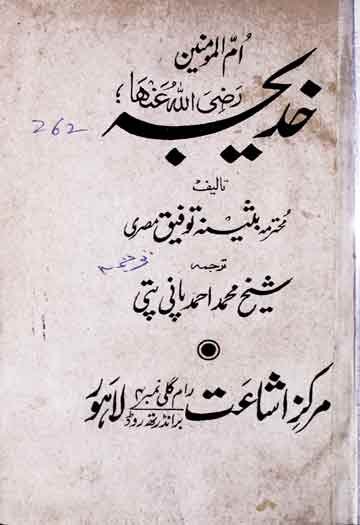 اُمّ المومنین
خدیجہ رَضِیَ اللہُ عَنْهَا؛
262
تالیف
محترمہ بثینہ توفیق مصری
ترجمہ
شیخ محمد احمد پانی پتی
مرکزِ اشاعت رام گلی نمبر ۴ برانڈرتھ روڈ لاہور